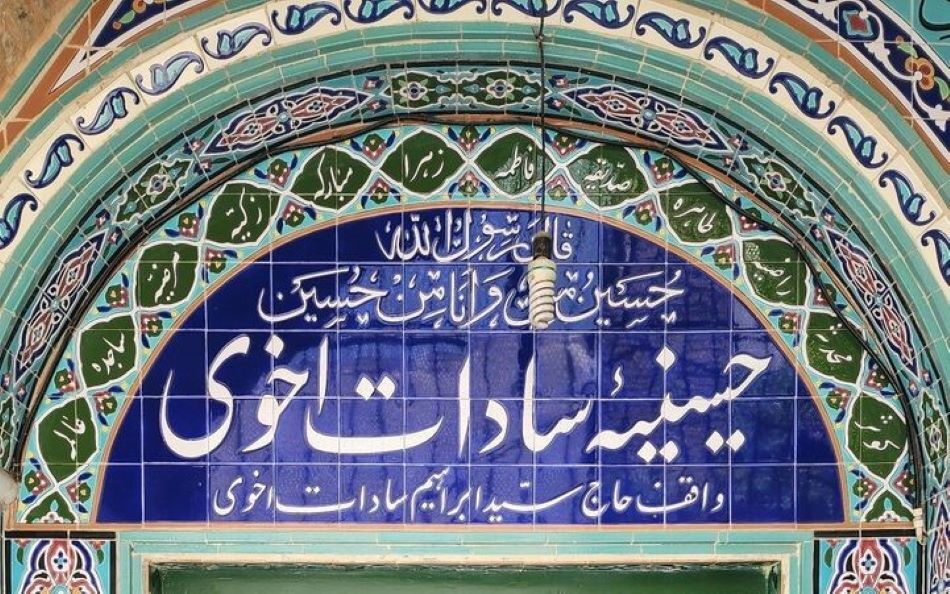 قال رسول الله
حسین منی و انا من حسین
حسینیهٔ سادات اخوی
واقف حاج سیّد ابراهیم سادات اخوی
کوثر
طاهره
صدیقه
فاطمه
زهرا
مبارکه
زکیّه
راضیه
ساجده
عالمه